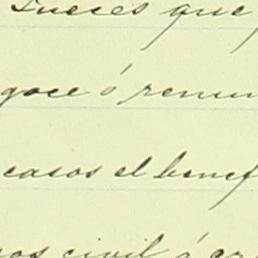 Jueces que
goce ó renun
casos el benef
os civil ó cr